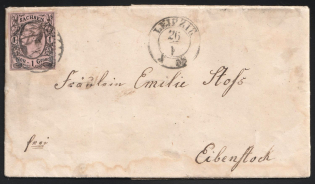 SACHSEN
1 1
LEIPZIG
26
I
Fräulein Emilie Stoß
frei
Eibenstock